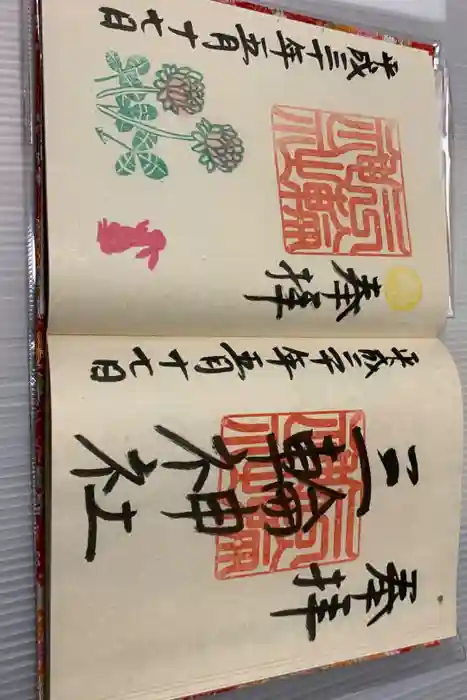 奉拝
三輪神社
平成三十年五月十七日
奉拝
平成三十年五月十七日